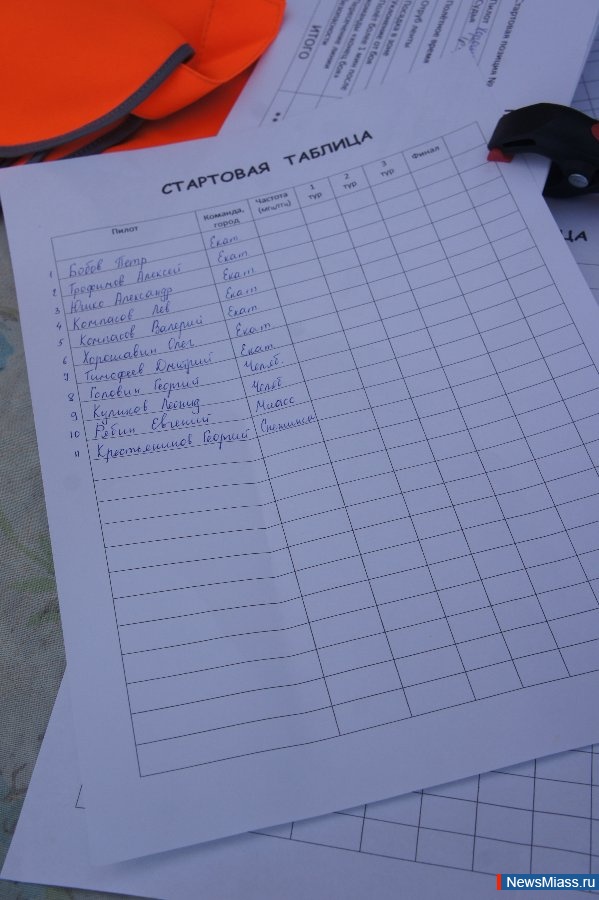 Стартовая позиция №
Пилот
Судья
Полётное время
Отруб ленты
Посадка в зоне
Уклонение от боя
Полёт более 3 мин после
команды «конец боя»
Пересечение линии
безопасности
ИТОГО
СТАРТОВАЯ ТАБЛИЦА
Пилот Команда, город Частота (МГц/ГГц) 1 тур 2 тур 3 тур Финал
1 Бобов Петр Екат
2 Трофимов Алексей Екат
3 Юшко Александр Екат
4 Компасов Лев Екат
5 Компасов Валерий Екат
6 Хорошавин Олег Екат
7 Тимофеев Дмитрий Екат.
8 Головин Георгий Челяб.
9 Куликов Леонид Челяб
10 Рябин Евгений Миасс
11 Крестьянинов Георгий
ЦА
NewsMiass.ru